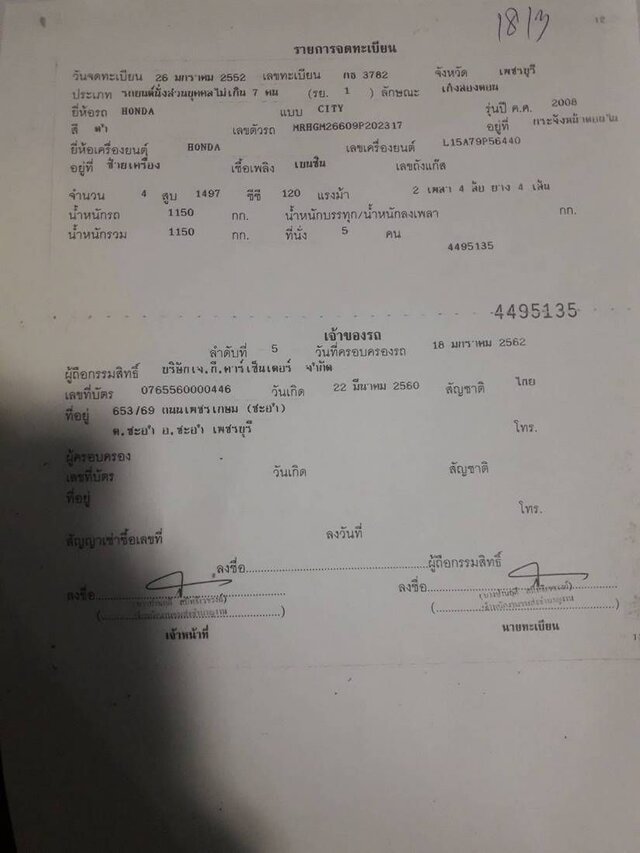 1813
12
รายการจดทะเบียน
วันจดทะเบียน 26 มกราคม 2552 เลขทะเบียน กธ 3782 จังหวัด เพชรบุรี
ประเภท รถยนต์นั่งส่วนบุคคลไม่เกิน 7 คน (รย. 1 ) ลักษณะ เก๋งสองตอน
ยี่ห้อรถ HONDA แบบ CITY รุ่นปี ค.ศ. 2008
สี ดำ เลขตัวรถ MRHGM26609P202317 อยู่ที่ กระจังหน้าตอนใน
ยี่ห้อเครื่องยนต์ HONDA เลขเครื่องยนต์ L15A79P56440
อยู่ที่ ซ้ายเครื่อง เชื้อเพลิง เบนซิน เลขถังแก๊ส
จำนวน 4 สูบ 1497 ซีซี 120 แรงม้า 2 เพลา 4 ล้อ ยาง 4 เส้น
น้ำหนักรถ 1150 กก. น้ำหนักบรรทุก/น้ำหนักลงเพลา กก.
น้ำหนักรวม 1150 กก. ที่นั่ง 5 คน
4495135
4495135
เจ้าของรถ
ลำดับที่ 5 วันที่ครอบครองรถ 18 มกราคม 2562
ผู้ถือกรรมสิทธิ์ บริษัทเจ.ที.คาร์เซ็นเตอร์ จำกัด
เลขที่บัตร 0765560000446 วันเกิด 22 มีนาคม 2560 สัญชาติ ไทย
ที่อยู่ 653/69 ถนนเพชรเกษม (ชะอำ)
ต.ชะอำ อ.ชะอำ เพชรบุรี โทร.
ผู้ครอบครอง
เลขที่บัตร วันเกิด สัญชาติ
ที่อยู่
โทร.
สัญญาเช่าซื้อเลขที่ ลงวันที่
ลงชื่อ ผู้ถือกรรมสิทธิ์
ลงชื่อ ลงชื่อ
เจ้าหน้าที่ นายทะเบียน